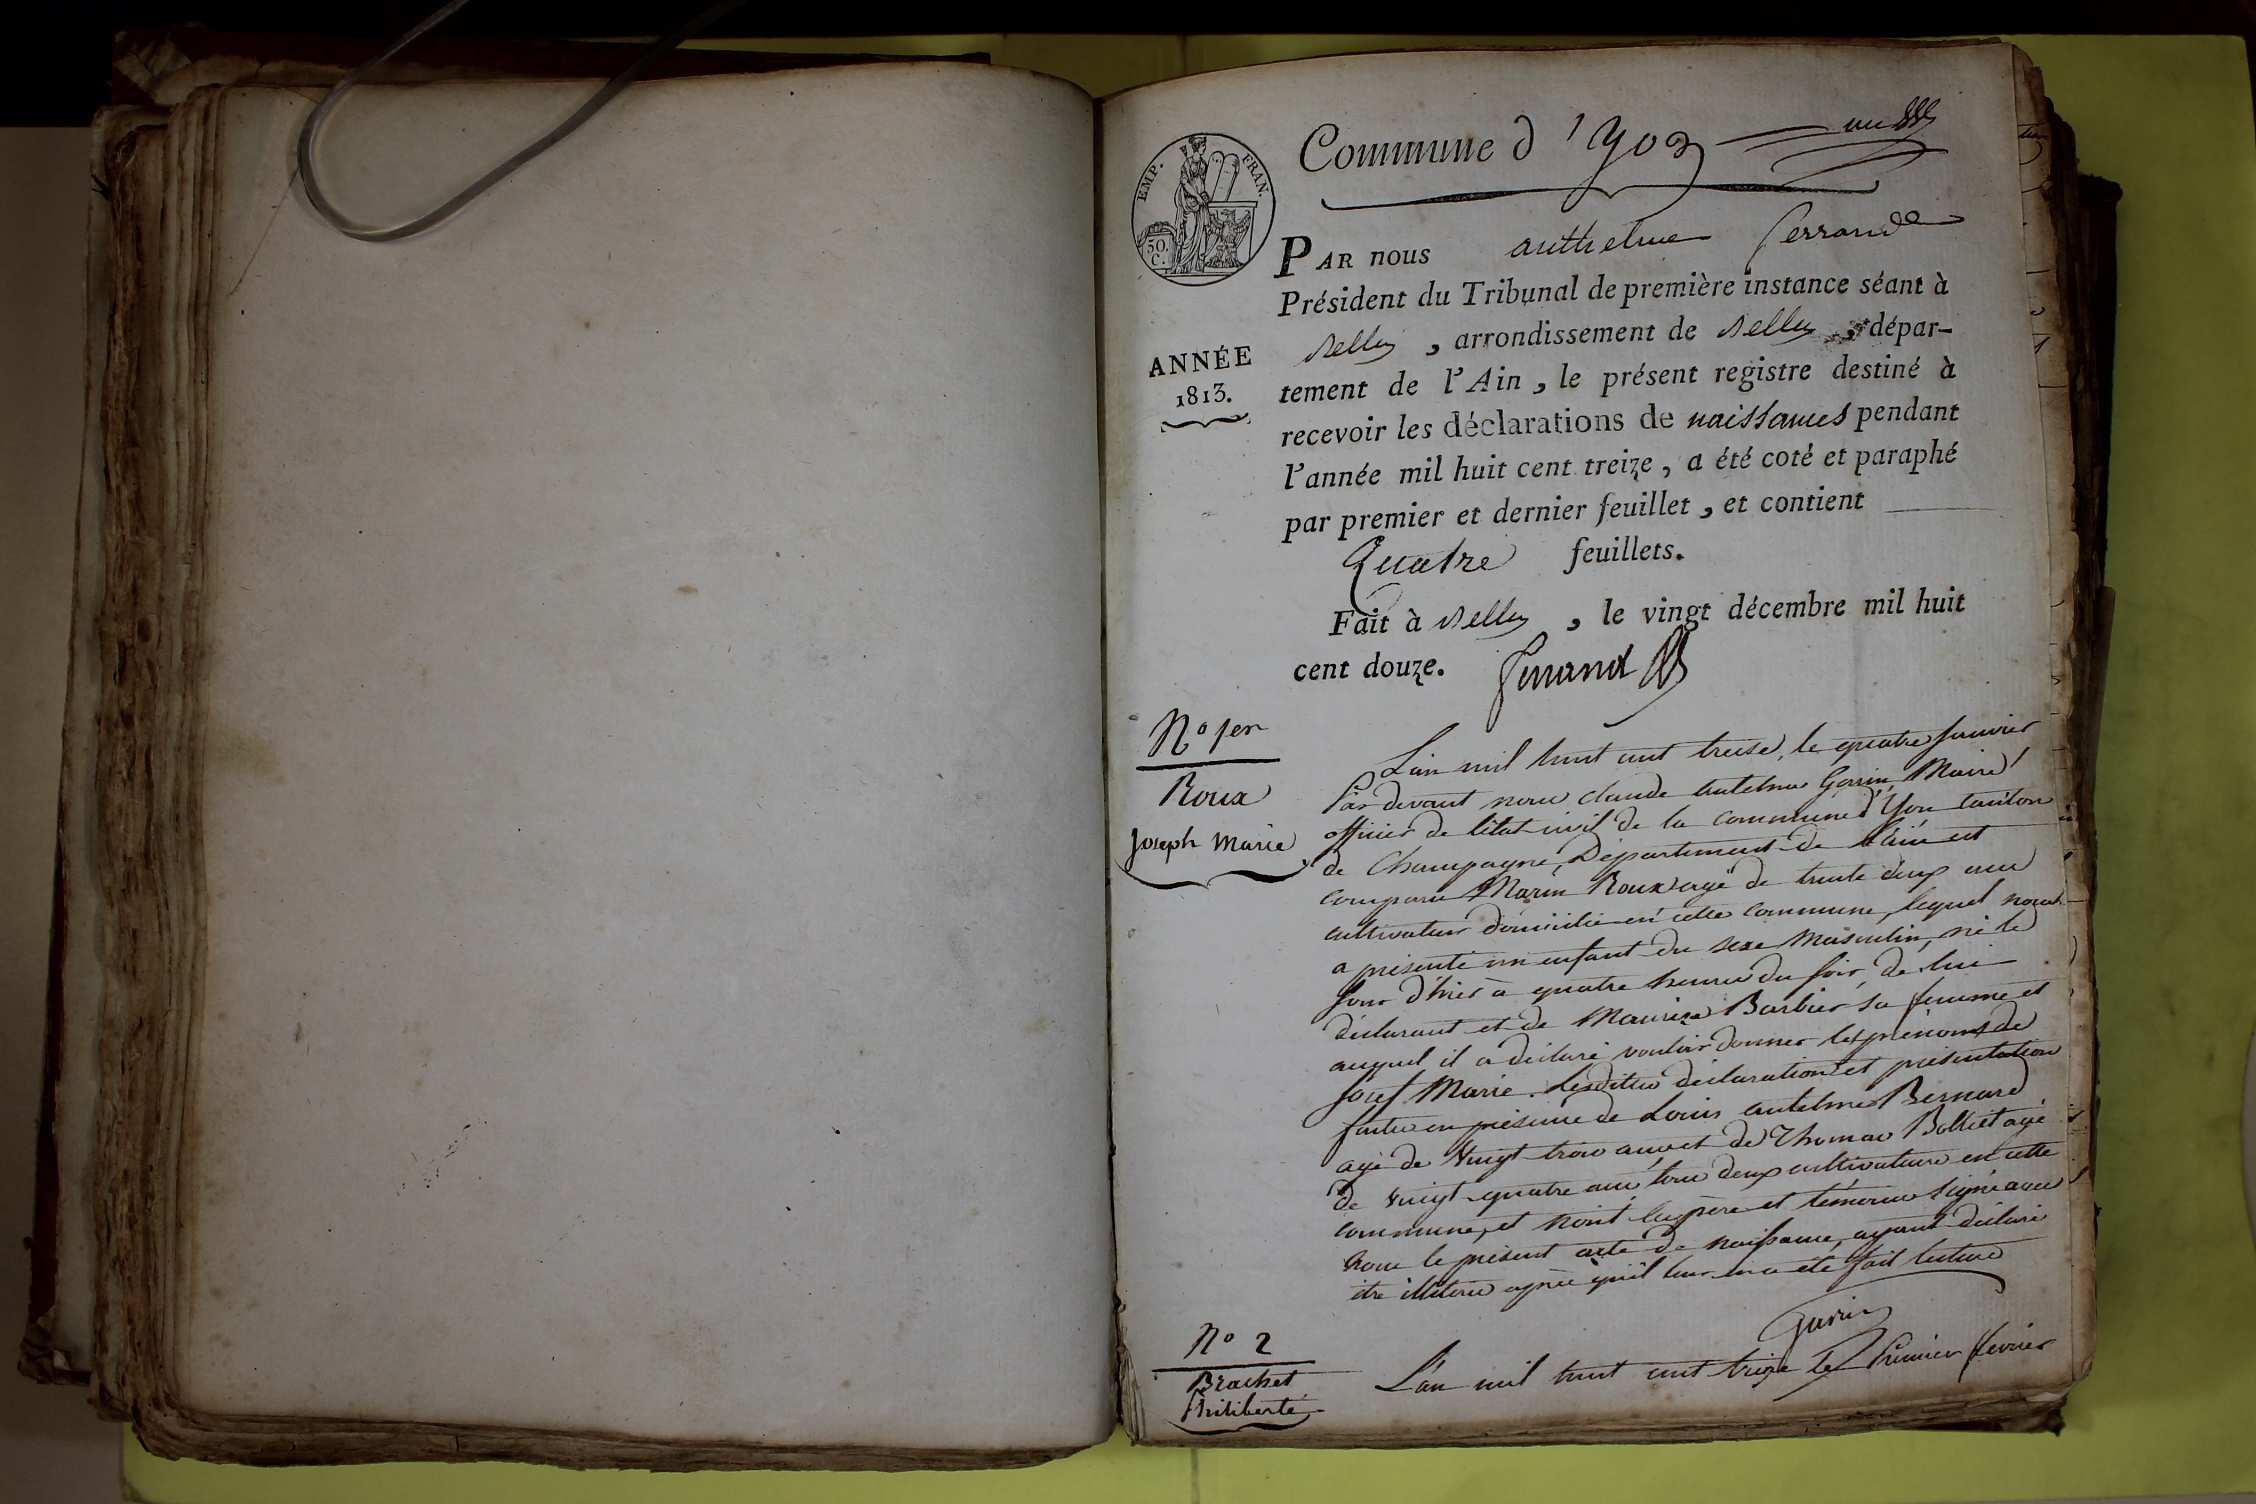 Commune d'Yon
EMP. FRAN.
50.
C.
PAR nous anthelme ferrand
Président du Tribunal de première instance séant à
Belley, arrondissement de Belley, dépar-
tement de l'Ain, le présent registre destiné à
recevoir les déclarations de naissances pendant
l'année mil huit cent treize, a été coté et paraphé
par premier et dernier feuillet, et contient
Quatre feuillets.
Fait à Belley, le vingt décembre mil huit
cent douze. ferrand
ANNÉE
1813.
N° 1er
Roux
Joseph Marie
L'an mil huit cent treise, le quatre Janvier
Par devant nous claude antelme Gorin Maire
officier de l'état civil de la commune d'Yon canton
de Champagne, Département de l'ain est
comparu Marin Roux agé de trente deux ans
cultivateur domicilié en cette commune, lequel nous
a présenté un enfant du sexe Masculin, né le
Jour d'hier à quatre heures du soir, de lui
déclarant et de Maurize Barbier sa femme et
auquel il a déclaré vouloir donner les prénoms de
Josef Marie. Lesdites déclaration et présentation
faites en présence de Louis antelme Bernard
agé de vingt trois ans et de Thomas Bolliet agé
de vingt quatre ans tous deux cultivateurs en cette
commune, et n'ont les père et témoins signé avec
nous le présent acte de naissance, ayant déclaré
être illitérés après qu'il leur en a été fait lecture
Gorin
N° 2
Brachet
Philiberte
L'an mil huit cent treize le Premier février